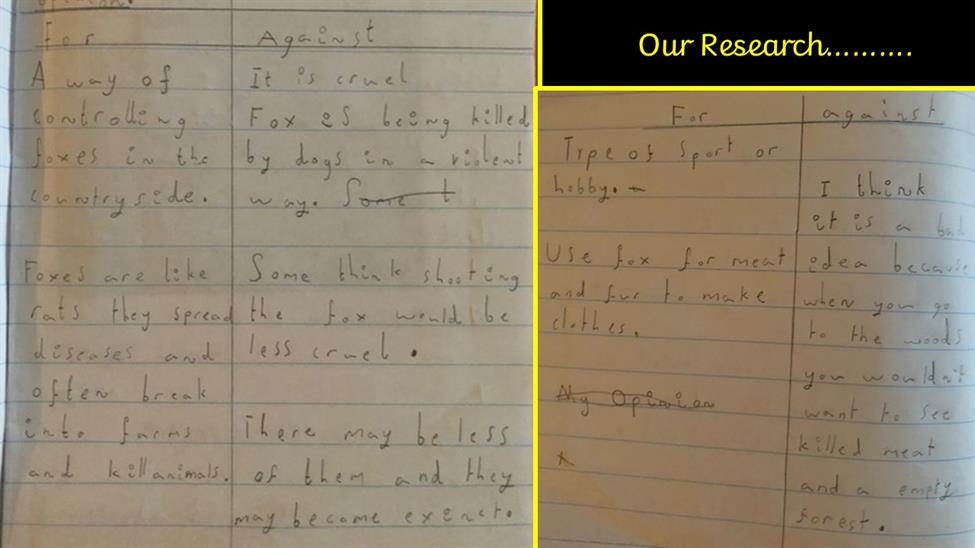 For
Against
A way of
controlling
foxes in the
countryside.
Foxes are like
rats they spread
diseases and
often break
into farms
and kill animals.
It is cruel
Fox is being killed
by dogs in a violent
way. Some t
Some think shooting
the fox would be
less cruel.
There may be less
of them and they
may become exenct.
Our Research..........
For
against
Type of Sport or
hobby.
Use fox for meat
and fur to make
clothes.
My Opinion
I think
it is a bad
idea because
when you go
to the woods
you wouldn't
want to see
killed meat
and a empty
forest.